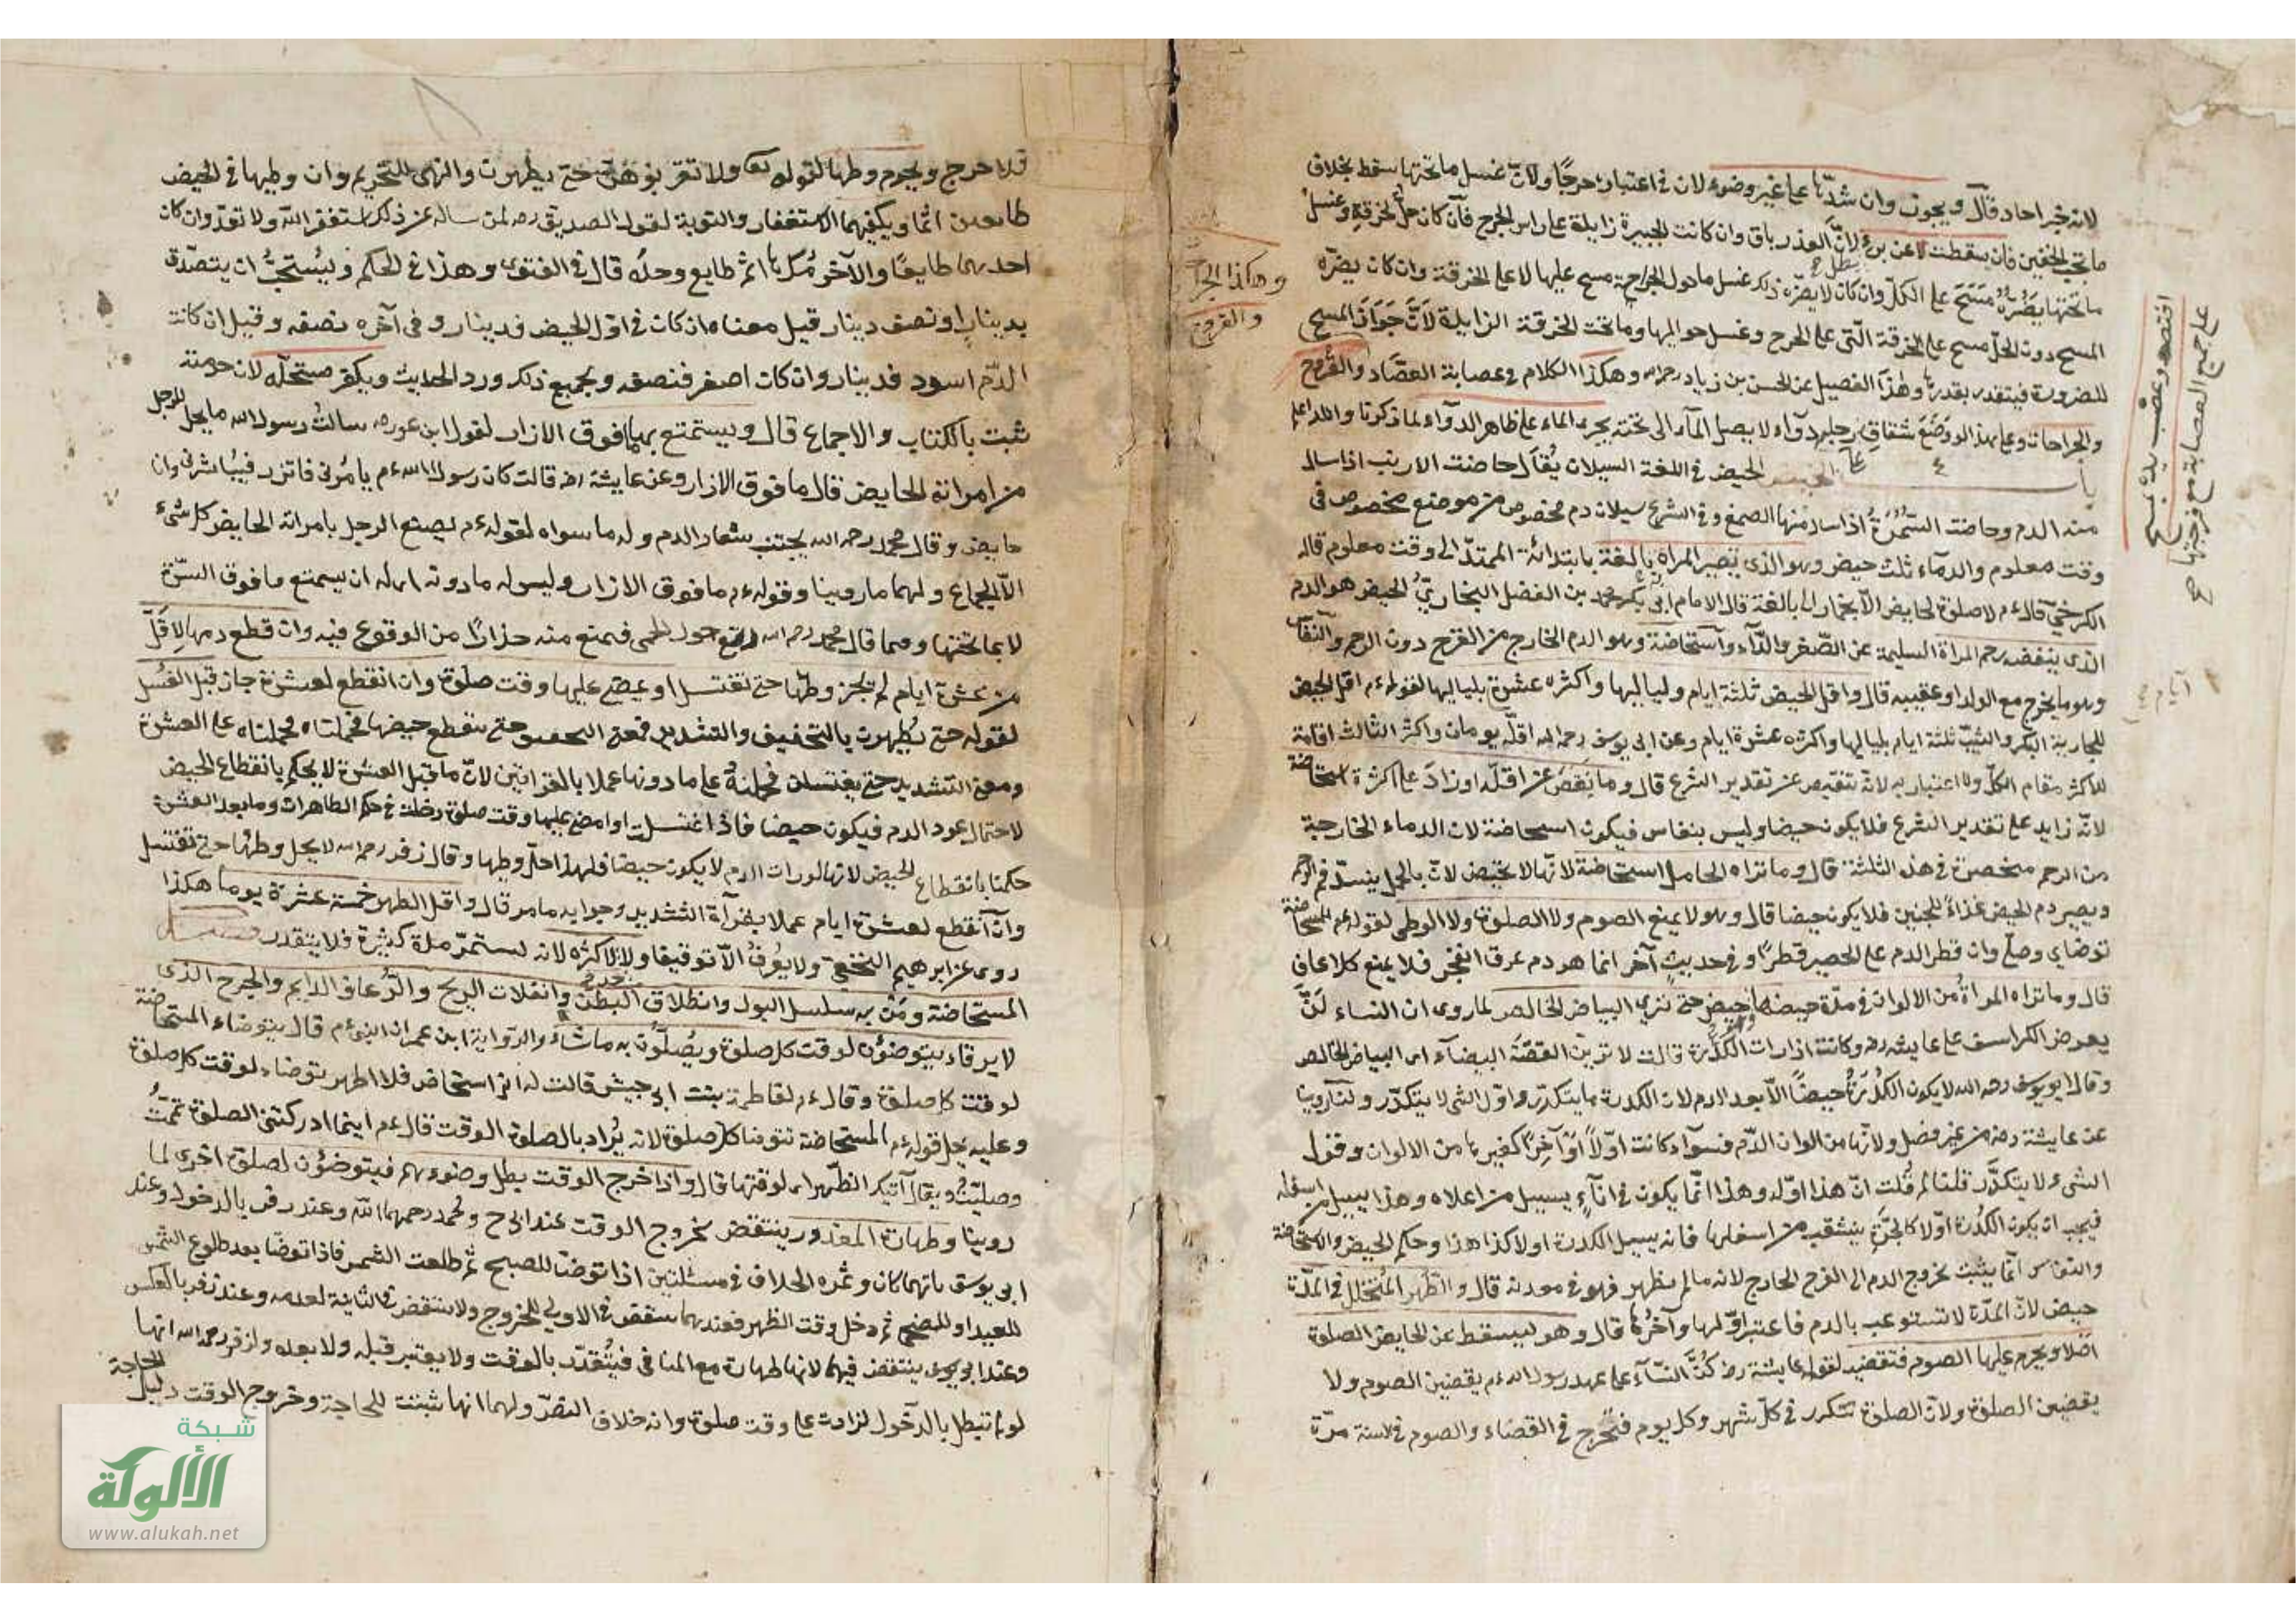 لانه خبر احاد قال ويجوز وان شدّها على غير وضوء لان في اعتباره حرجًا ولانّ غسل ما تحتها سقط بخلاف
ما تحت الخفين فان سقطت لا عن برء لانّ العذر باق وان كانت الجبيرة زايدة على راس الجرح فان كان حلّ الخرقة وغسل
ما تحتها يضرّه مسح على الكلّ وان كان لا يضرّه ذلك غسل ما حول الجراحة مسح عليها لا على الخرقة وان كان يضرّه
المسح دون الحلّ مسح على الخرقة التي على الجرح وغسل حواليها وما تحت الخرقة الزايدة لانّ جواز المسح
للضرورة فيتقدر بقدرها وهذا التفصيل عن الحسن بن زياد رحمه الله وهكذا الكلام في عصابة الفصّاد والقروح
والجراحات وعلى هذا لو وضع شقاق رجله دواء لا يصل الماء الى تحته يجرى الماء على ظاهر الدواء لما ذكرنا والله اعلم
باب الحيض الحيض في اللغة السيلان يُقال حاضت الارنب اذا سال
منه الدم وحاضت السّمُرَةُ اذا سال منها الصمغ وفي الشرع سيلان دم مخصوص من موضع مخصوص في
وقت معلوم والدماء ثلث حيض وهو الذي تصير المراة بالغة بابتدائه الممتدّ الى وقت معلوم قاله
الكرخي قال ءم لا صلوة لحايض الا بخمار اى بالغة قال الامام ابى بكر محمد بن الفضل البخاريّ الحيض هو الدم
الذي ينفضه رحم المراة السليمة عن الصّغر والدّاء واستحاضة وهو الدم الخارج من الفرج دون الرحم والنفاس
وهو ما يخرج مع الولد او عقيبه قال واقل الحيض ثلثة ايام ولياليها واكثره عشرة بلياليها لقوله ءم اقل الحيض
للجارية البكر والثيّب ثلثة ايام بلياليها واكثره عشرة ايام وعن ابى يوسف رحمه الله اقلّه يومان واكثر الثالث اقامة
للاكثر مقام الكلّ ولا اعتبار به لانّه تنقيص عن تقدير الشرع قال وما نقص عن اقلّه او زاد على اكثره استحاضة
لانّه زايد على تقدير الشرع فلا يكون حيضا وليس بنفاس فيكون استحاضة لان الدماء الخارجة
من الرحم منحصرة في هذه الثلثة قال وما تراه الحامل استحاضة لانّها لا تحيض لانّ بالحبل ينسدّ فم الرحم
ويصير دم الحيض غذاءً للجنين فلا يكون حيضا قال وهو لا يمنع الصوم ولا الصلوة ولا الوطى لقوله ءم للمستحاضة
توضاى وصلّى وان قطر الدم على الحصير قطرًا وفي حديث آخر انما هو دم عرق انفجر فلا يمنع كالرعاف
قال وما تراه المراة من الالوان في مدّة حيضها حيض حتى ترى البياض الخالص لما روى ان النساء كنّ
يعرضن الكراسف على عايشة رضه وكانت اذا رات الكُدْرة قالت لا حتى ترين القصّة البيضاء اى البياض الخالص
وقال ابو يوسف رحمه الله لا يكون الكُدْرَةُ حيضًا الّا بعد الدم لان الكدرة ما يتكدّر واوّل الشى لا يتكدّر ولنا روينا
عن عايشة رضه من غير فصل ولانّها من الوان الدّم فسواء كانت اوّلًا او آخرًا كغيرها من الالوان وقول
الشيء لا يتكدّر قلنا لم قلت انّ هذا اوّله وهذا انّما يكون في اناءٍ يسيل من اعلاه وهذا يسيل من اسفله
فيجب ان يكون الكُدْرة اوّلا كالجرّةِ ينثقب من اسفلها فانه يسيل الكدرة اولا كذا هذا وحكم الحيض والاستحاضة
والنفاس انّما يثبت بخروج الدم الى الفرج الخارج لانه ما لم يظهر فهو في معدنه قال والطّهر المُتخلّل في المدّة
حيض لانّ المدّة لا تستوعب بالدم فاعتبر اوّلها وآخرُها قال وهو يسقط عن الحايض الصلوة
اصلا ويحرم عليها الصوم فتقضيه لقول عايشة رضه كُنَّ النّساء على عهد رسول الله ءم يقضين الصوم ولا
يقضين الصلوة ولانّ الصلوة تتكرر في كلّ شهر وكل يوم فتُحرج في القضاء والصوم في السنة مرّة
اقتصد وعصّب يده مسح
على جميع العصابة مع فرجتها صح
ايام
وهكذا الجراح
والقروح
فلا حرج ويحرم وطيها لقوله تعالى ولا تقربوهنّ حتى يطهرن والنهى للتحريم وان وطيها في الحيض
طايعين اثما ويكفيهما الاستغفار والتوبة لقول الصديق رضه لمن ساله عن ذلك استغفر الله ولا تعد وان كان
احدهما طايعًا والآخر مُكرهًا اثم طايع وحده قال في الفتوى وهذا في الحكم ويُستحبُّ ان يتصدّق
بدينار او نصف دينار قيل معناه ان كان في اوّل الحيض فدينار وفي آخره نصفه وقيل ان كانت
الدّم اسود فدينار وان كان اصفر فنصفه وبجميع ذلك ورد الحديث ويكفر مستحلّه لان حرمته
ثبت بالكتاب والاجماع قال ويستمتع بما فوق الازار لقول ابن عمر رضه سالتُ رسول الله ما يحل للرجل
من امراته الحايض قال ما فوق الازار وعن عايشة رضه قالت كان رسول الله ءم يامُرنى فاتزر فيُباشرنى وان
حايض وقال محمد رحمه الله يجتنب شعار الدم وله ما سواه لقوله ءم ليصنع الرجل بامراته الحايض كل شيء
الّا الجماع ولهما ما روينا وقوله ءم ما فوق الازار وليس له ما دونه اى له ان يستمتع ما فوق السرّة
لا بما تحتها ومما قال محمد رحمه الله رتع حول الحمى فيمنع منه حذارًا من الوقوع فيه وان قطع دمها لاقلّ
من عشرة ايام لم يجز وطيها حتى تغتسل او يمضى عليها وقت صلوة وان انقطع لعشرة جاز قبل الغُسل
لقوله حتى يطهرن بالتخفيف والتشديد فمعنى التخفيف حتى ينقطع حيضها فحملناه على العشرة
ومعنى التشديد حتى يغتسلن فحملنهُ على ما دونها عملا بالقراتين لانّ ما قبل العشرة لا يحكم بانقطاع الحيض
لاحتمال عود الدم فيكون حيضا فاذا اغتسلت او امضى عليها وقت صلوة دخلت في حكم الطاهرات وما بعد العشرة
حكمنا بانقطاع الحيض لانها لو رات الدم لا يكون حيضا فلهذا احلّ وطيها وقال زفر رحمه الله لا يحل وطيُها حتى تغتسل
وان انقطع لعشرة ايام عملا بقراة التشديد وجوابه ما مر قال واقل الطهر خمسة عشرة يوما هكذا
روى عن ابرهيم النخعى ولا يعُرفُ الّا توقيفا ولا لاكثره لانه يستمرّ مدّة كثيرة فلا يتقدر فصل
المستحاضة ومَنْ به سلسل البول وانطلاق البطن وانفلات الريح والرُّعاف الدايم والجرح الذى
لا يرقاد يتوضؤن لوقت كل صلوة ويُصلّون به ما شاء والرواية ابن عمر ان النبى ءم قال يتوضاء المستحاضة
لوقت كل صلوة وقال ءم لفاطمة بنت ابى حبيش قالت له انى استحاض فلا اطهر يتوضاء لوقت كل صلوة
وعليه يحمل قوله ءم المستحاضة تتوضا كل صلوة لانه يُراد بالصلوة الوقت قال ءم اينما ادركتنى الصلوة تممّتُ
وصليّتُ ويقال آتيك الظّهر اى لوقتها قال واذا خرج الوقت بطل وضوءهم فيتوضؤن لصلوة اخرى لما
روينا وطهارة المعذور ينتقض بخروج الوقت عند ابى ح ومحمد رحمهما الله وعند زفر بالدخول وعند
ابى يوسف بايهما كان وثمره الخلاف في مسئلتين اذا توضّا للصبح ثم طلعت الشمس فاذا توضا بعد طلوع الشمس
للعيد او للضحى ثم دخل وقت الظهر فعندهما ينتقض في الاولى للخروج ولا ينتقض في الثانية لعدمه وعند زفر بالعكس
وعند ابى يوسف ينتقض فيهما لانها طهارة مع المنافى فيُتقدّر بالوقت ولا يعتبر قبله ولا بعده ولزفر رحمه الله انها
لو لم تبطل بالدخول لزادت على وقت صلوة وانه خلاف النصّ ولهما انها ثبتت للحاجة وخروج الوقت دليل
الحاجة
شبكة
الألوكة
www.alukah.net